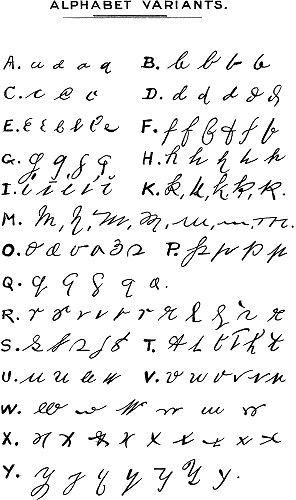 ALPHABET VARIANTS.
A. u a a q B. b b b b
C. c e c D. d d d d d
E. E E e e e e F. f f f f f f
G. g g g g H. h h h h h
I. i i i i i K. k, k, k, k, k.
M. m, m, m, m, m, m, m.
O. o o o o o o P. p p p p
Q. q q q q q.
R. r r r r r r r r r r r
S. s s s s s T. t t t t t t
U. u u u u V. v v v v v v
W. w w w w w w
X. x x x x x x x x x
Y. y y y y y y y.